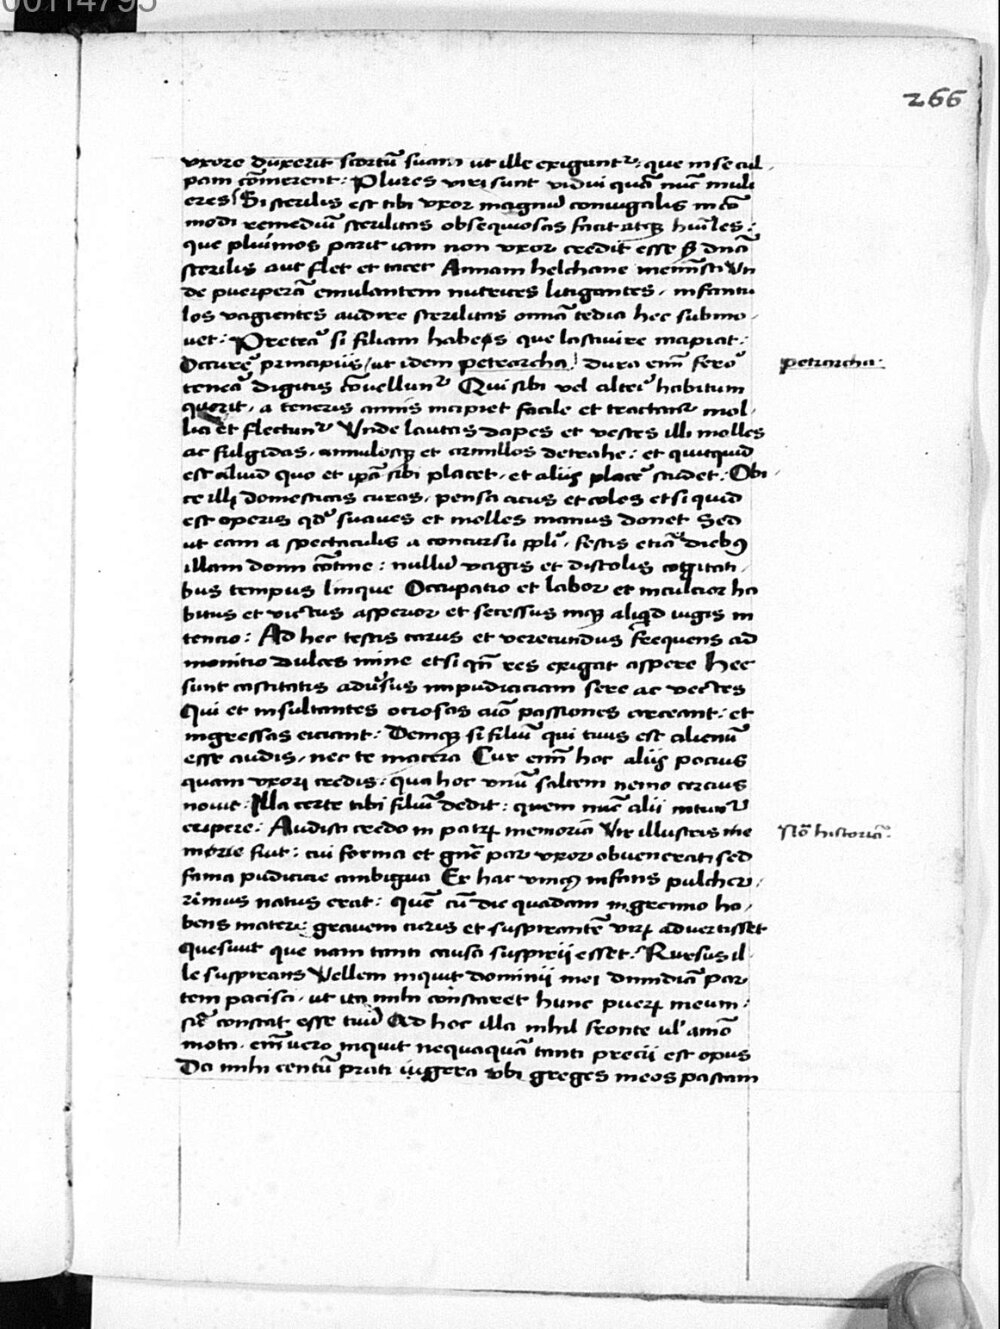 00114795
266
vxore duxerit scortū suam ut ille exigant̄ᵘ: que in se cul
pam cōmerent: Plures viri sunt vidui quā nūc muli
eres Si sterilis est tibi vxor magnū coniugalis incō
modi remediū sterilitas obsequiosas facit atq̨ hūiles:
que plurimos parit iam non vxor credit esse s̨ dnā
sterilis aut flet et tacet Annam helchane memīsti Vn
de puerperā emulantem nutrices litigantes, infantu
los vagientes audire sterilitas omīa tedia hec submo
uet: Preteā si filiam habes que lasciuire incipiat:
Occurē principiis / ut idem petrarcha / dura enī fero
petrarcha:
teneā digitis cōuellunᵘ Qui sibi vel alteī habitum
querit, a teneris annis incipiet facile et tractanᵘ mol
lia et flectunᵘ Vnde lautas dapes et vestes illi molles
ac fulgidas, annulosq̨ et armillos detrahe: et quitquid
est aliud quo et ipā sibi placet, et aliis placē studet: Obi
ce illi domesticas curas, pensa acus et coles et si quid
est operis qď suaues et molles manus donet Sed
ut eam a spectaculis a concursu ppli, festis etiā dieb9
illam domi cōtine: nullū vagis et distolis cogitati
bus tempus linque Occupatio et labor et inculcior ha
bitus et victus asperior et secessus inq̨ aliqd iugis in
tencio: Ad hec testis carus et verecundus frequens ad
monitio dulces mine et si qn̄ res exigat aspere Hec
sunt castitatis adūsus impudiciciam sere ac vectes
Qui et insultantes ociosas aīo passiones arceant: et
ingressas eiciant: Demq̨ si filiū qui tuus est alienū
esse audis, nec te macera Cur enī hoc aliis pocius
quam vxori credis: qua hoc vnū saltem nemo cercius
nouit: Illa certe tibi filiū dedit: quem nūc alii nitunᵘ
eripere: Audisti credo in patrꝝ memoriā Vir illustris me
Nō historiā:
morie fuit: cui forma et gn̄e par vxor obuenerat: sed
fama pudicicie ambigua Ex hac vnic9 infans pulcher
rimus natus erat: quē cū die quadam in gremio ha
bens mater: grauem curis et suspirantē virꝝ aduertisset
quesiuit que nam tanti causa suspirii esset: Rursus il
le suspirans Vellem inquit dominii mei dimidiā par
tem pacisci, ut ita mihi constaret hunc puerꝝ meum:
sīc constat esse tuū Ad hoc illa nihil fronte ul' aīmo
mota, enī uero inquit nequaquā tanti precii est opus
Da mihi centū prati iuggera vbi greges meos pascam